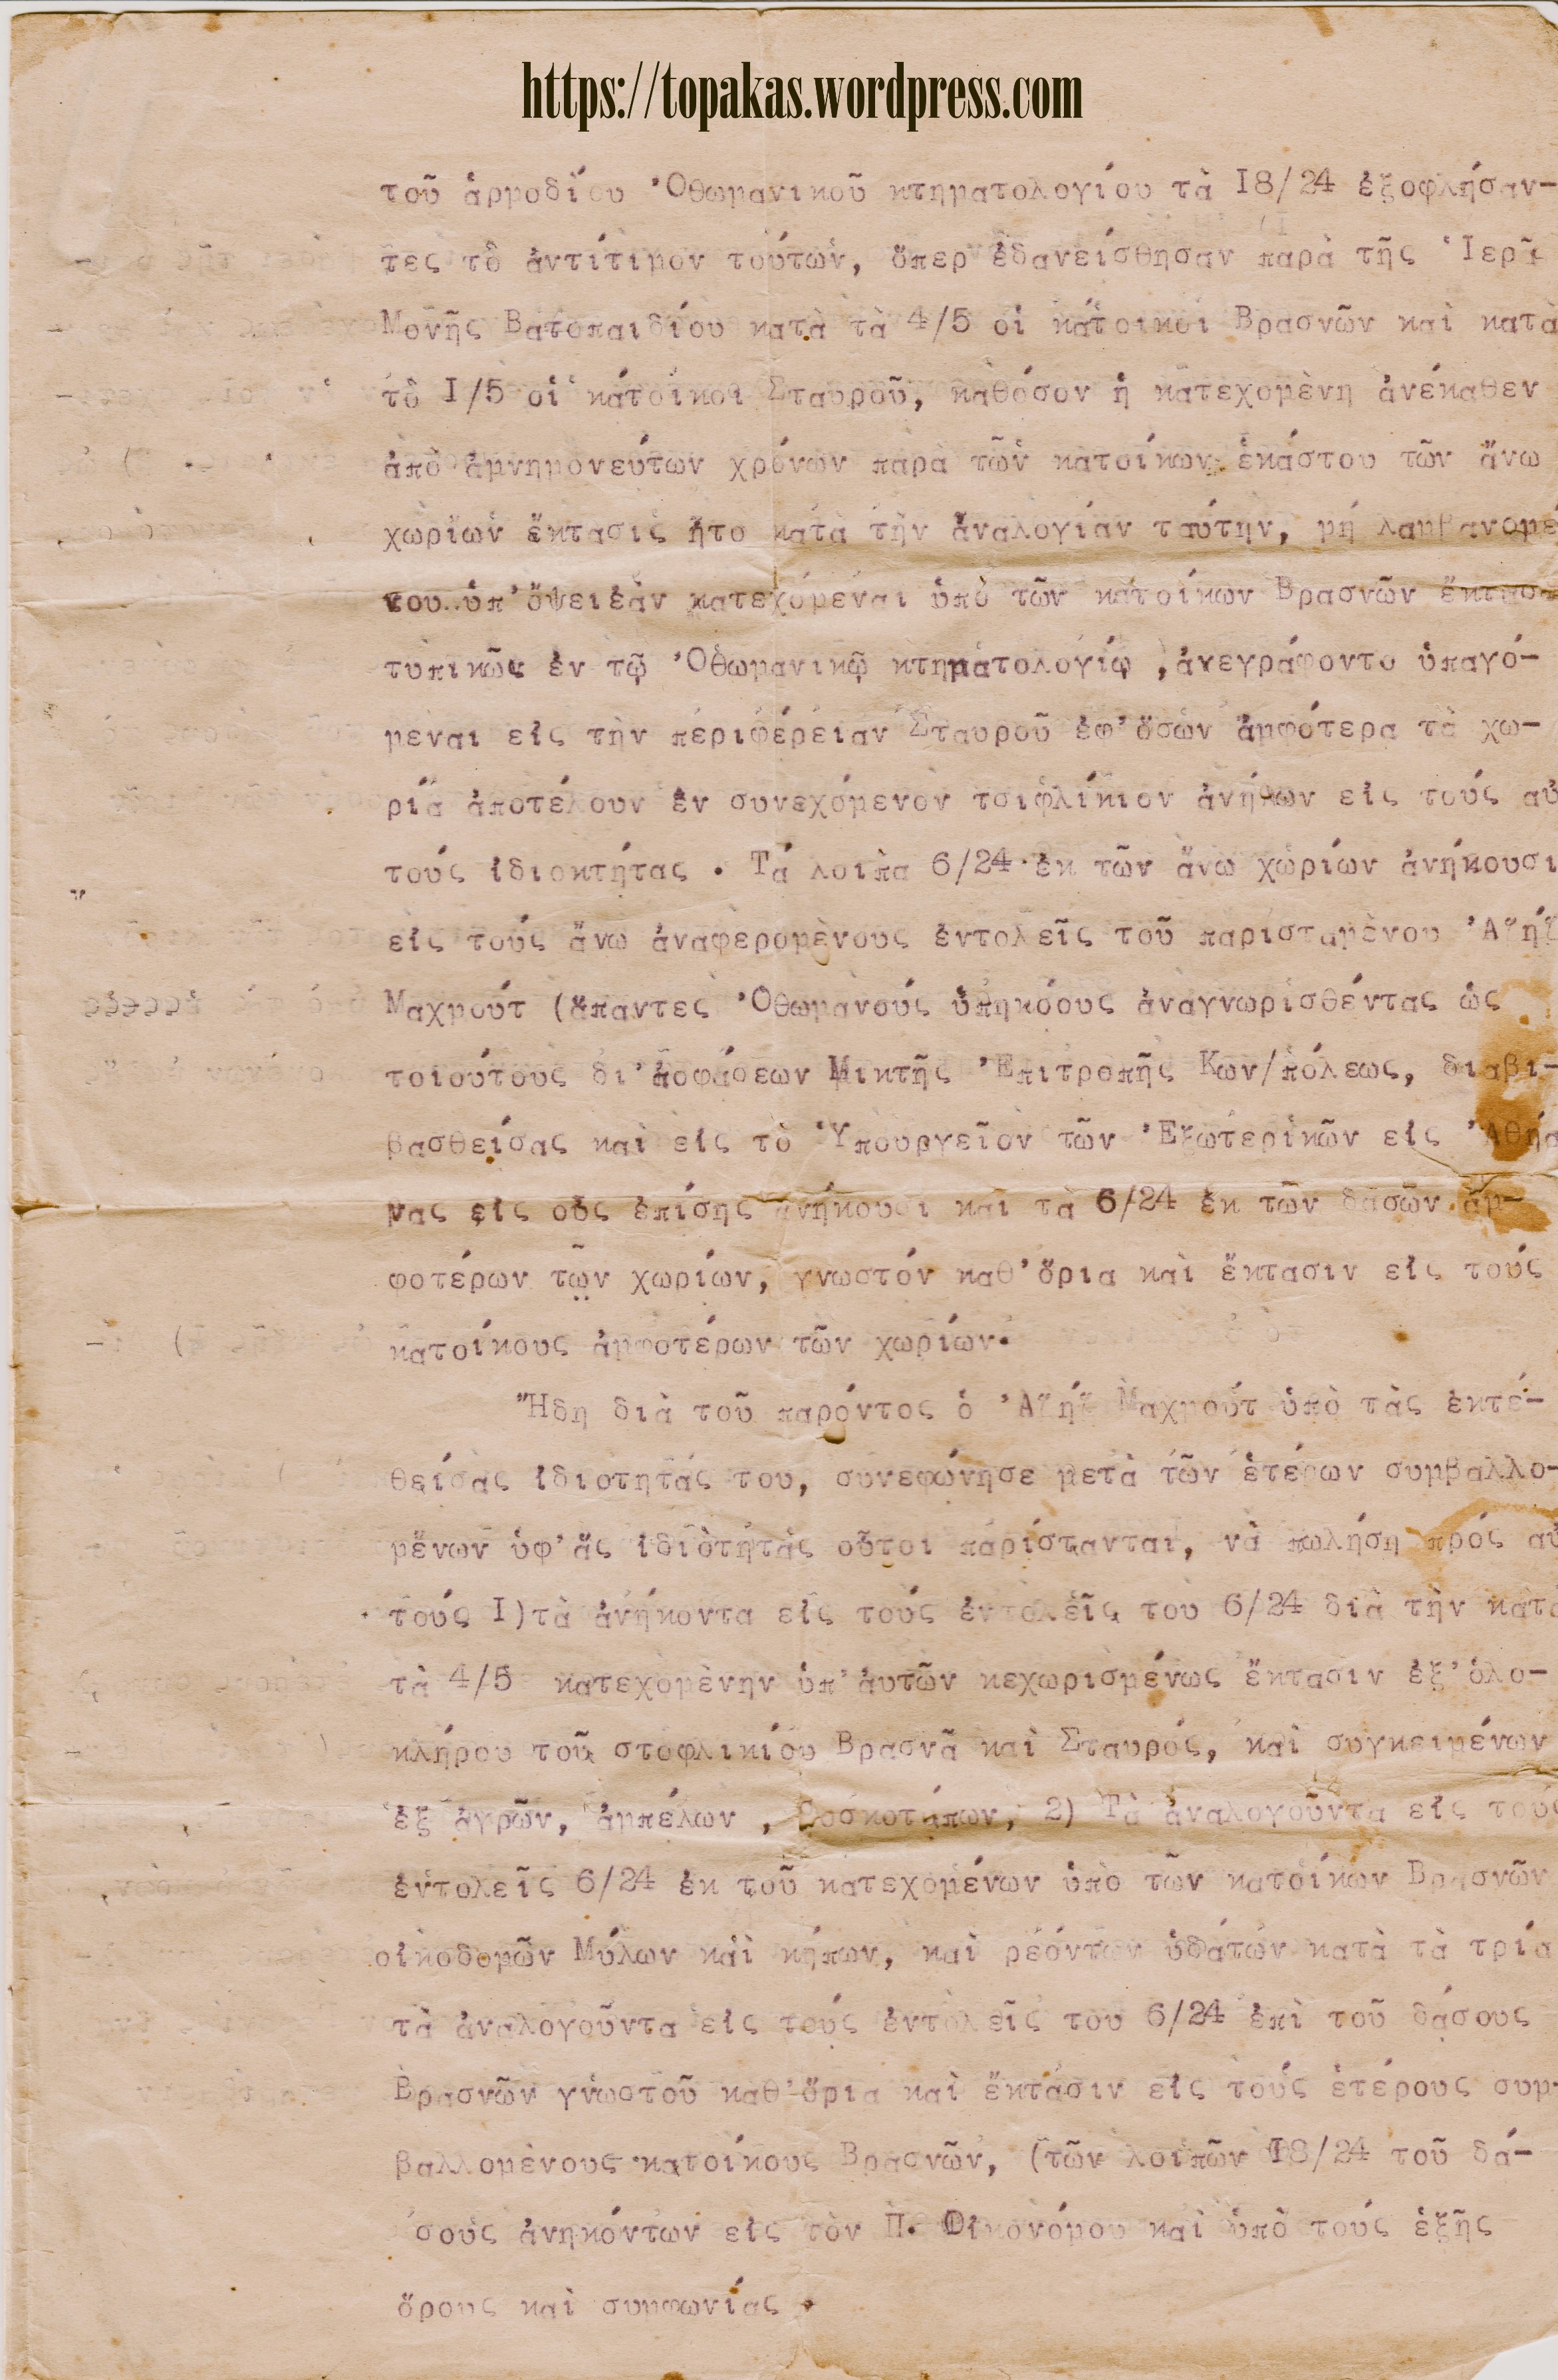 https://topakas.wordpress.com
τοῦ ἁρμοδίου Ὀθωμανικοῦ κτηματολογίου τὰ I8/24 ἐξοφλήσαν-
τες τὸ ἀντίτιμον τούτων, ὅπερ ἐδανείσθησαν παρὰ τῆς Ἱερᾶ
Μονῆς Βατοπαιδίου κατὰ τὰ 4/5 οἱ κάτοικοι Βρασνῶν καὶ κατὰ
τὸ I/5 οἱ κάτοικοι Σταυροῦ, καθόσον ἡ κατεχομὲνη ἀνέκαθεν
ἀπὸ ἀμνημονεύτων χρόνων παρὰ τῶν κατοίκων ἑκάστου τῶν ἄνω
χωρίων ἔκτασις ἦτο κατὰ τὴν ἀναλογίαν ταύτην, μή λαμβανομέ
νου ὑπ' ὄψει ἐὰν κατεχόμεναι ὑπὸ τῶν κατοίκων Βρασνῶν ἔκτασ
τυπικῶς ἐν τῷ Ὀθωμανικῷ κτηματολογίῳ ,ἀνεγράφοντο ὑπαγό-
μεναι εἰς τὴν περιφέρειαν Σταυροῦ ἐφ' ὅσων ἀμφότερα τὰ χω-
ρία ἀποτέλουν ἓν συνεχόμενον τσιφλίκιον ἀνῆκων εἰς τούς αὐ
τούς ἰδιοκτήτας . Τά λοιπα 6/24 ἐκ τῶν ἄνω χωρίων ἀνήκουσι
εἰς τούς ἄνω ἀναφερομὲνους ἐντολεῖς τοῦ παρισταμὲνου Ἀζήζ
Μαχμούτ (ἅπαντες Ὀθωμανούς ὑπηκόους ἀναγνωρισθέντας ὡς
τοιούτους δι' ἀοφάσεων Μικτῆς Ἐπιτροπῆς Κων/πόλεως, διαβι-
βασθείσας καὶ εἰς τὸ Ὑπουργεῖον τῶν Ἐξωτερικῶν εἰς Ἀθήα
νας εἰς οὕς ἐπίσης ἀνήκουσι καὶ τὰ 6/24 ἐκ τῶν δασῶν ἀμ-
φοτέρων τῶν χωρίων, γνωστόν καθ' ὅρια καὶ ἔκτασιν εἰς τούς
κατοίκους ἀμφοτέρων τῶν χωρίων.
Ἤδη διὰ τοῦ παρόντος ὁ Ἀζήζ Μαχμούτ ὑπὸ τὰς ἐκτε-
θείσας ἰδιοτητάς του, συνεφώνησε μετὰ τῶν ἑτέρων συμβαλλο-
μἔνων ὑφ' ἅς ἰδιότητάς οὗτοι παρίστανται, νὰ πωλήση πρός αὐ
τούς I)τὰ ἀνήκοντα εἰς τούς ἐντολεῖς του 6/24 διὰ τὴν κατα
τὰ 4/5 κατεχομὲνην ὑπ' ἀυτῶν κεχωρισμένως ἔκτασιν ἐξ' ὁλο-
κλήρου τοῦ στοφλικίου Βρασνᾶ καὶ Σταυρός, καὶ συγκειμένων
ἐξ ἀγρῶν, ἀμπέλων , βοσκοτόπων, 2) Τὰ ἀναλογοῦντα εἰς τούς
ἐντολεῖς 6/24 ἐκ τοῦ κατεχομένων ὑπὸ τῶν κατοίκων Βρασνῶν
οἰκοδομῶν Μύλων καὶ κήπων, καὶ ρεόντων ὑδάτων κατὰ τὰ τρία
τὰ ἀναλογοῦντα εἰς τούς ἐντολεῖς του 6/24 ἐπὶ τοῦ δάσους
Βρασνῶν γνωστοῦ καθ' ὅρια καὶ ἔκτασιν εἰς τούς ἑτέρους συμ-
βαλλομὲνους κατοίκους Βρασνῶν, (τῶν λοιπῶν I8/24 τοῦ δά-
σους ἀνηκόντων εἰς τὸν Π. Οἰκονόμου καὶ ὑπὸ τούς ἑξῆς
ὅρους καὶ συμφωνίας .